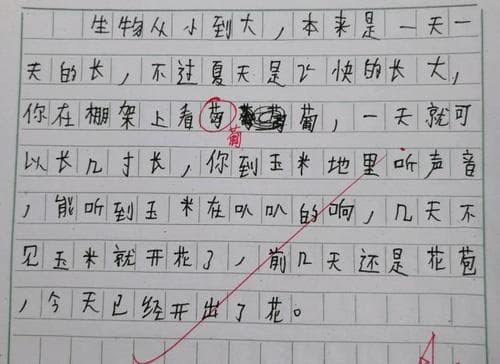 生物从小到大，本来是一天一
天的长，不过夏天是飞快的长大，
你在棚架上看葡，一天就可
葡
以长几寸长，你到玉米地里听声音
，能听到玉米在叭叭的响，几天不
见玉米就开花了，前几天还是花苞
，今天已经开出了花。